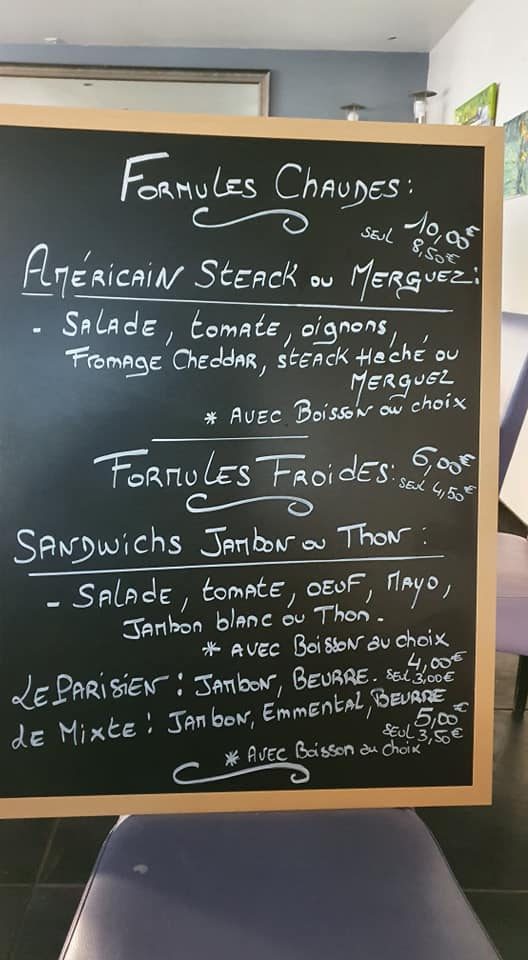 FORMULES CHAUDES:
10,00€
SEUL 8,50€
AMÉRICAIN STEACK OU MERGUEZ:
- SALADE, tomate, oignons,
FROMAGE CHEDDAR, STEACK HACHÉ OU
MERGUEZ
* AVEC BOISSON au choix
FORMULES FROIDES: 6,00€
SEUL 4,50€
SANDWICHS JAMBON OU THON:
- SALADE, tomate, OEUF, MAYO,
JAMBON blanc ou THON.
* AVEC BOISSON au choix
4,00€
LE PARISIEN: JAMBON, BEURRE. SEUL 3,00€
LE MIXTE: JAMBON, EMMENTAL, BEURRE
5,00€
SEUL 3,50€
* AVEC BOISSON au choix